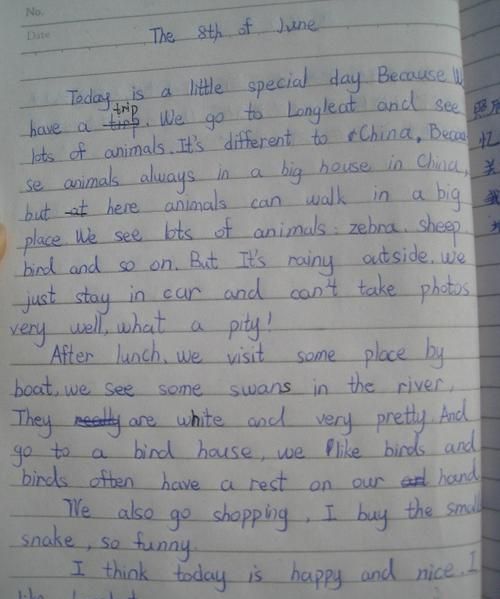 No.
Date
The 8th of June
Today is a little special day Because W
trip
have a trip. We go to Longleat and see
lots of animals. It's different to China, Becau-
se animals always in a big house in China,
but at here animals can walk in a big
place. We see lots of animals: zebra. sheep
bird and so on. But It's rainy outside, we
just stay in car and can't take photos
very well, what a pity!
After lunch, we visit some place by
boat, we see some swans in the river,
They really are white and very pretty And
go to a bird house, we like birds and
birds often have a rest on our and hand
We also go shopping, I buy the small
snake, so funny.
I think today is happy and nice. I
照片
忆
关